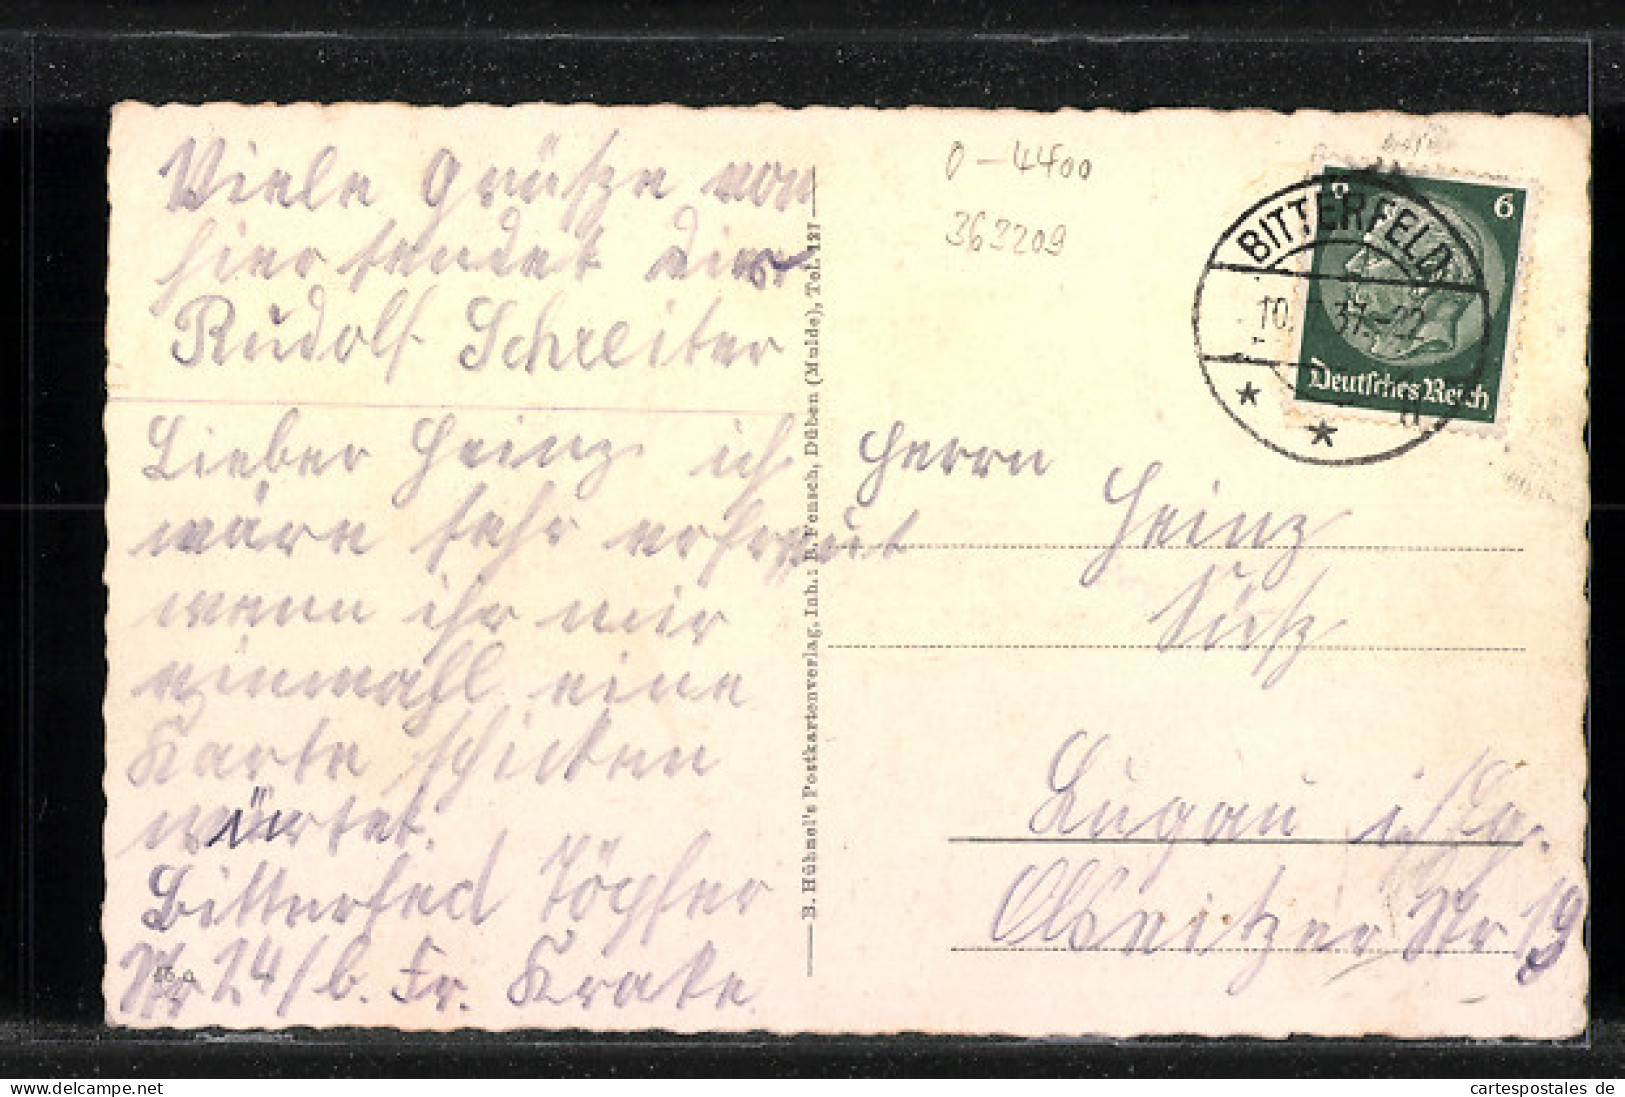 Viele Grüße von
hier sendet dier
Rudolf Schreiter
Lieber Heinz ich
wäre sehr erfreut
wenn ihr mir
einmahl eine
Karte schicken
würtet.
Bitterfed Töpfer
Str 24 / b. Fr. Krake
16 9
B. Hühnel's Postkartenverlag, Inh.: B. Fensch, Düben (Mulde), Tel. 127
0-4400
363209
BITTERFELD
10. 37.-22
6
Deutsches Reich
Herrn
Heinz
Süß
Lugau i/Sa.
Ölsnitzer Str 19
cartespostales de